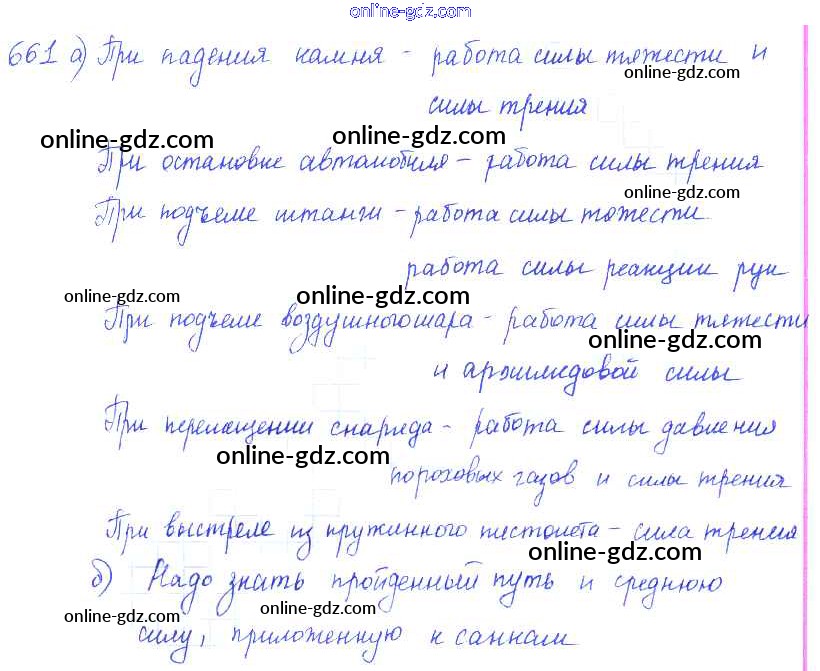 online-gdz.com
661 а) При падения камня - работа силы тяжести и
online-gdz.com
силы трения
online-gdz.com online-gdz.com
При остановке автомобиля - работа силы трения
online-gdz.com
При подъеме штанги - работа силы тяжести.
работа силы реакции рук
online-gdz.com online-gdz.com
При подъеме воздушного шара - работа силы тяжести
online-gdz.com
и архимедовой силы
При перемещении снаряда - работа силы давления
online-gdz.com
пороховых газов и силы трения
При выстреле из пружинного пистолета - сила трения
online-gdz.com
б) Надо знать пройденный путь и среднюю
online-gdz.com online-gdz.com
силу, приложенную к санкам